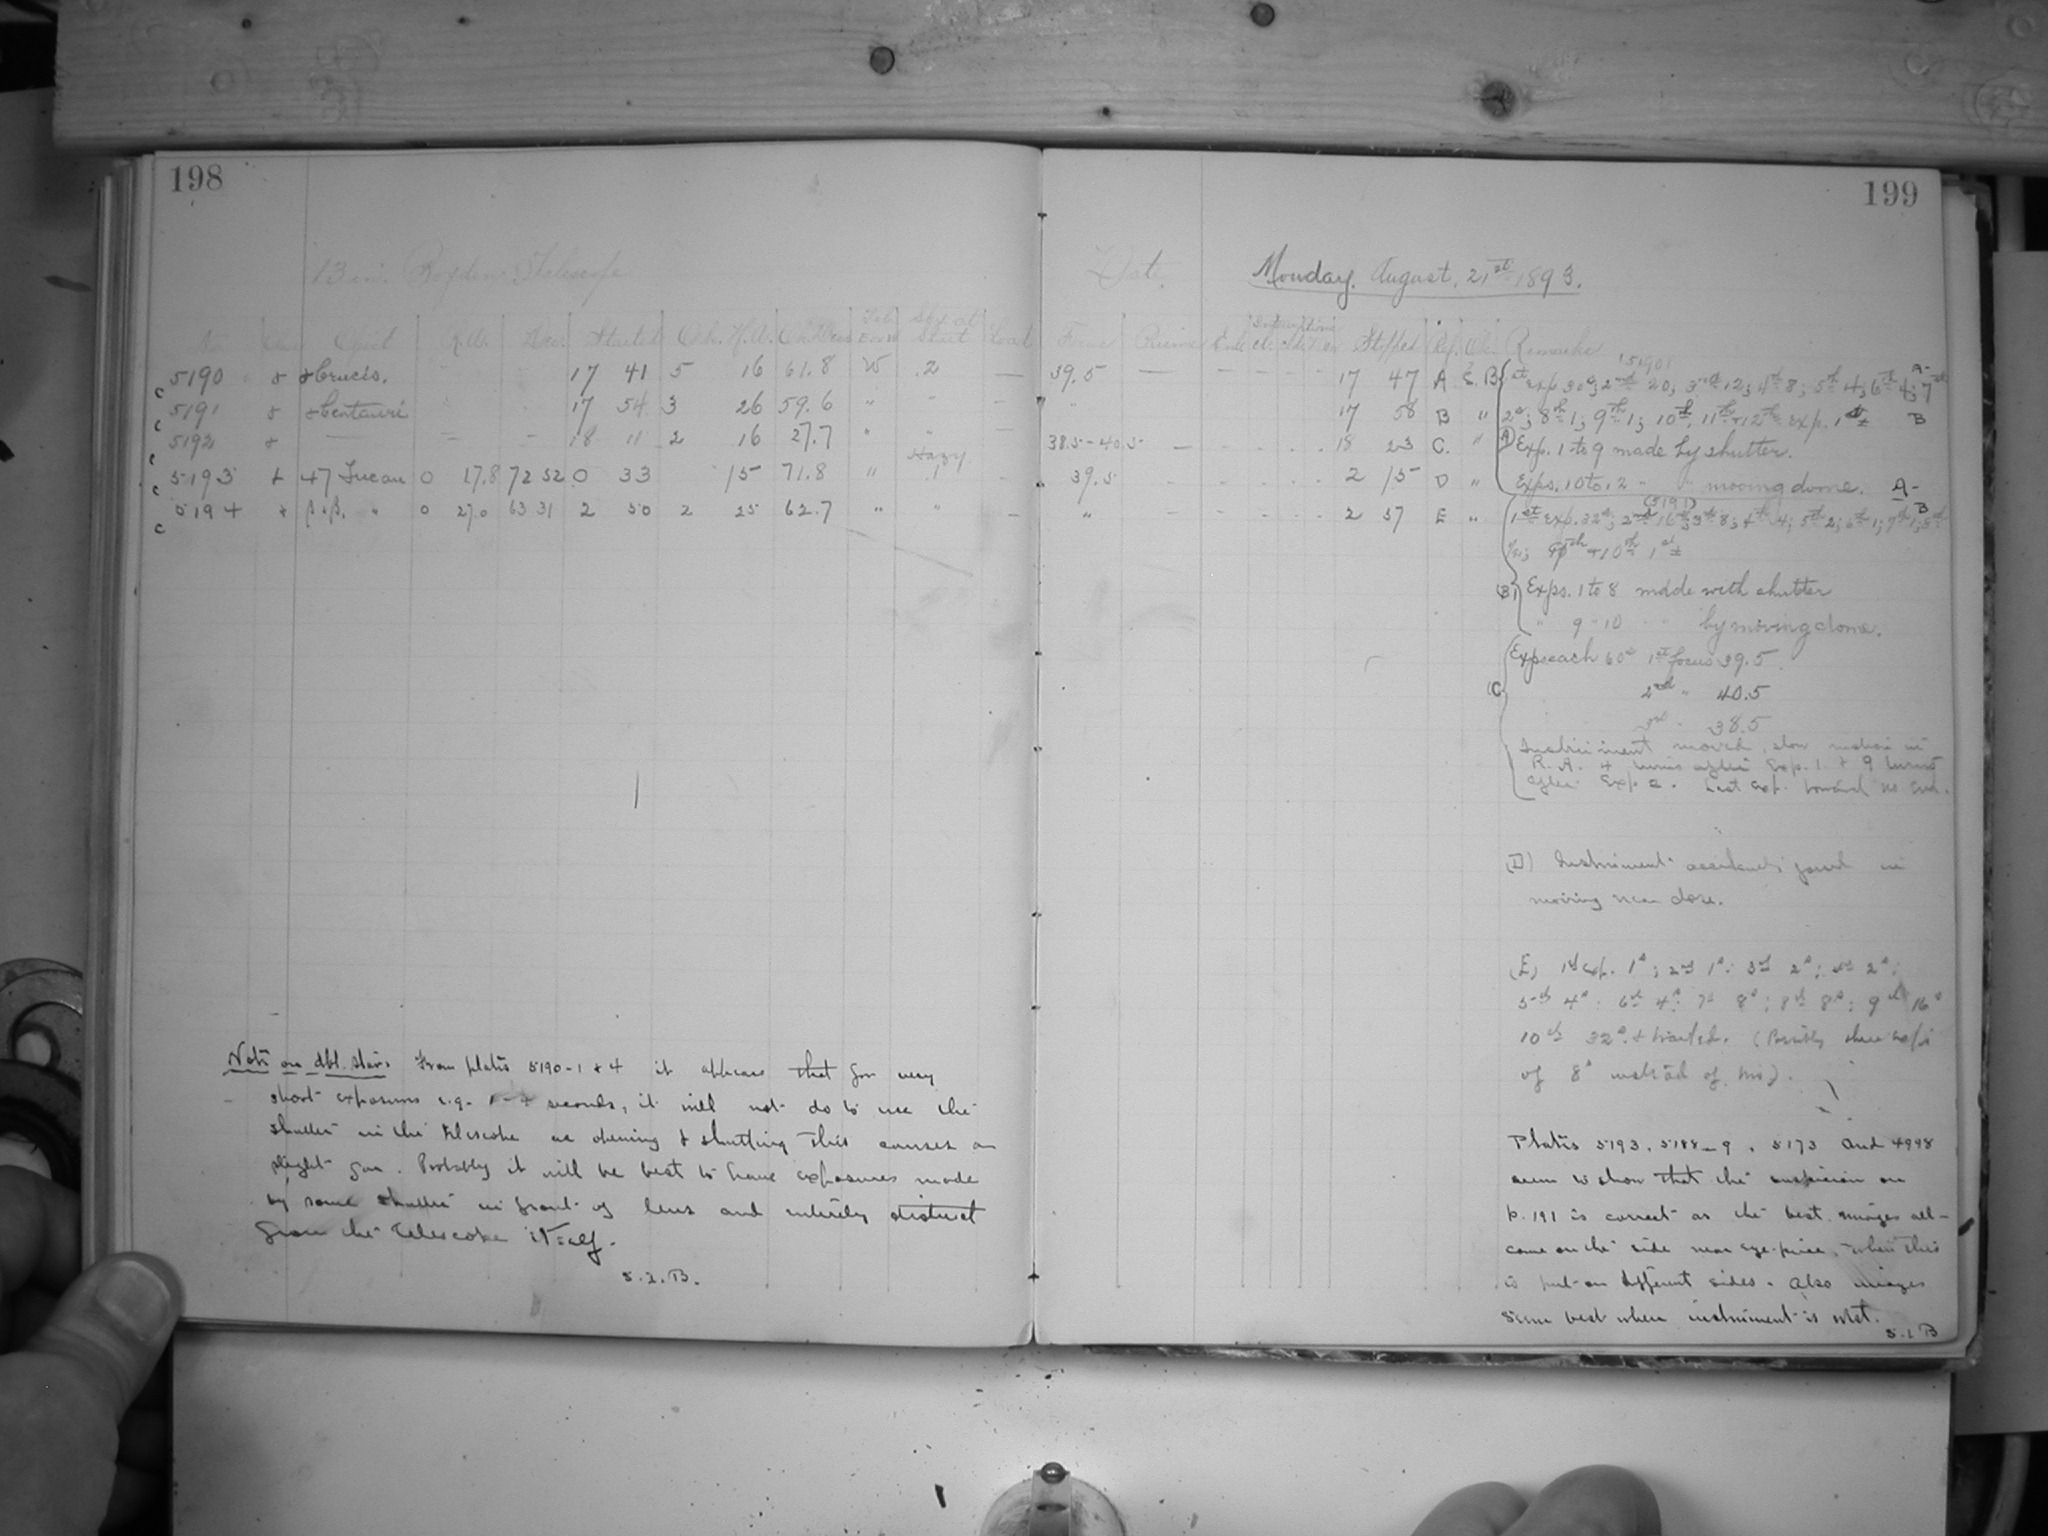 198
13 in. Boyden Telescope
No. Object R.A. Dec. Started Ch. H.A. Ch. Dec. Start
5190 α Crucis. 17 41 5 16 61.8 W 2 —
c
5191 α Centauri 17 54 3 26 59.6 " " -
c
5192 — — - 18 11 2 16 27.7 " "
c
5193 47 Tucan 0 17.8 72 52 0 33 15 71.8 " Hazy 1 -
c
5194 β " 0 27.0 63 31 2 50 2 25 62.7 " " —
c
Note on dbl. stars From plates 5190-1 & 4 it appears that for very
short exposures e.g. seconds, it will not do to use the
shutter in the telescope as opening & shutting this causes a
slight jar. Probably it will be best to have exposures made
by some shutter in front of lens and entirely distinct
from the telescope itself.
S.I.B.
199
Date. Monday. August. 21st 1893.
Focus Stopped Ref. Ob. Remarks
39.5 — — - - - - 17 47 A S.B
" 17 58 B "
38.5-40.5 — - - - - 18 23 C. "
39.5 - - - - - 2 15 D "
" - - - - - 2 57 E "
(5190) A-
1st Exp 30s; 2nd 20; 3rd 12; 4th 8; 5th 4; 6th 4; 7th
2s; 8th 1; 9th 1; 10th, 11th + 12th exp. 1s B
(A) Exp. 1 to 9 made by shutter.
Exps. 10 to 12 - " moving dome. A-
(5191) B
1st Exp. 32s; 2nd 16; 3rd 8; 4th 4; 5th 2; 6th 1; 7th 1; 8th
9th + 10th 1s
(B) Exps. 1 to 8 made with shutter
" 9-10 " " by moving dome.
Exps each 60s 1st focus 39.5
(C) 2nd " 40.5
3rd " 38.5
Instrument moved, slow motion in
R.A. 4 turns after Exp. 1 & 9 turns
after Exp 2. Last exp. toward no. end.
(D) Instrument in
moving near close.
(E) 1st exp. 1s; 2nd 1s; 3rd 2s; 4th 2s;
5th 4s; 6th 4s; 7th 8s; 8th 8s; 9th 16s
10th 32s & trailed. (Possibly three exps
of 8s instead of two).
Plates 5193, 5188-9, 5173 and 4998
seem to show that the suspicion on
p. 191 is correct as the best images all
come on the side near eye-piece, when this
is put on different sides. Also images
seem best when instrument is west.
S.I.B